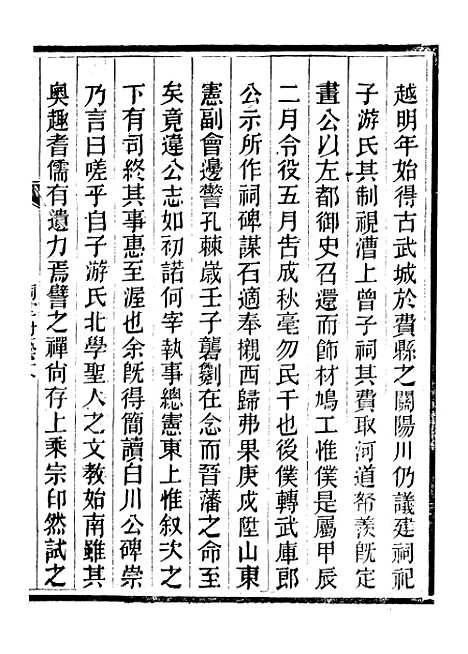 越明年始得古武城於費縣之關陽川仍議建祠祀
子游氏其制視漕上曾子祠其費取河道帑羨旣定
畫公以左都御史召還而飭材鳩工惟僕是屬甲辰
二月令役五月告成秋毫勿民干也後僕轉武庫郎
公示所作祠碑謀石適奉櫬西歸弗果庚戌陞山東
憲副會邊警孔棘歲壬子礱劖在念而晉藩之命至
矣竟違公志如初諾何宰執事總憲東上惟叙次之
下有司終其事惠至渥也余旣得簡讀白川公碑崇
乃言曰嗟乎自子游氏北學聖人之文教始南雖其
奥趣耆儒有遺力焉譬之禪尙存上乘宗印然試之